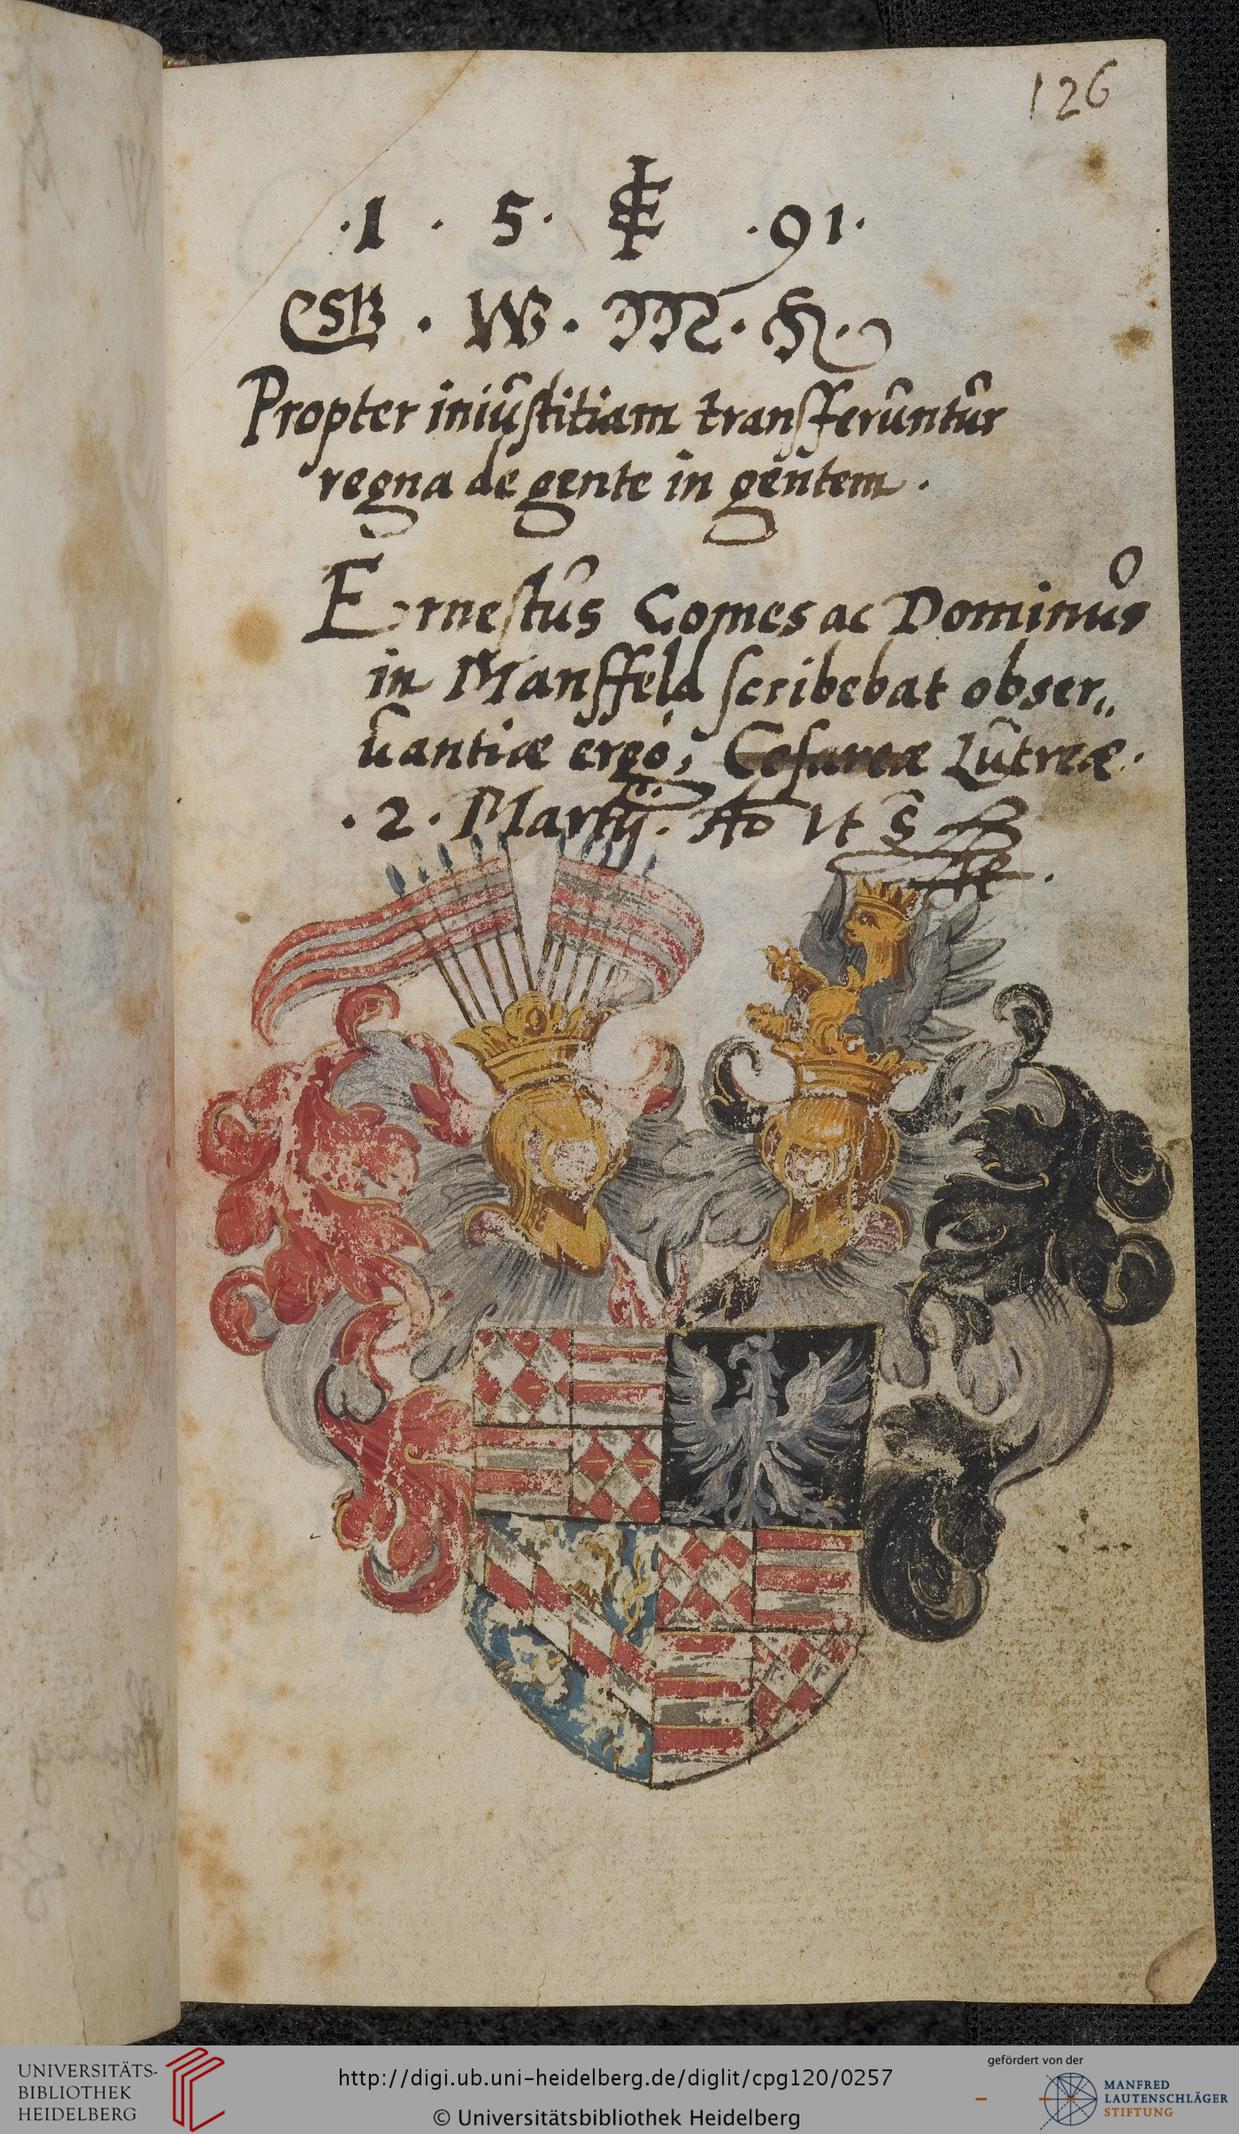 126
·1 · 5· ·91·
W · M · H ·
Propter iniustitiam transferuntur
regna de gente in gentem ·
Ernestus Comes ac Dominus
in Mansffeld scribebat obser„
uantiæ ergò; Cesareæ Lutreæ·
· 2 · Martij · Aō Vt S
UNIVERSITÄTS-
BIBLIOTHEK
HEIDELBERG
http://digi.ub.uni-heidelberg.de/diglit/cpg120/0257
© Universitätsbibliothek Heidelberg
gefördert von der
MANFRED
LAUTENSCHLÄGER
STIFTUNG